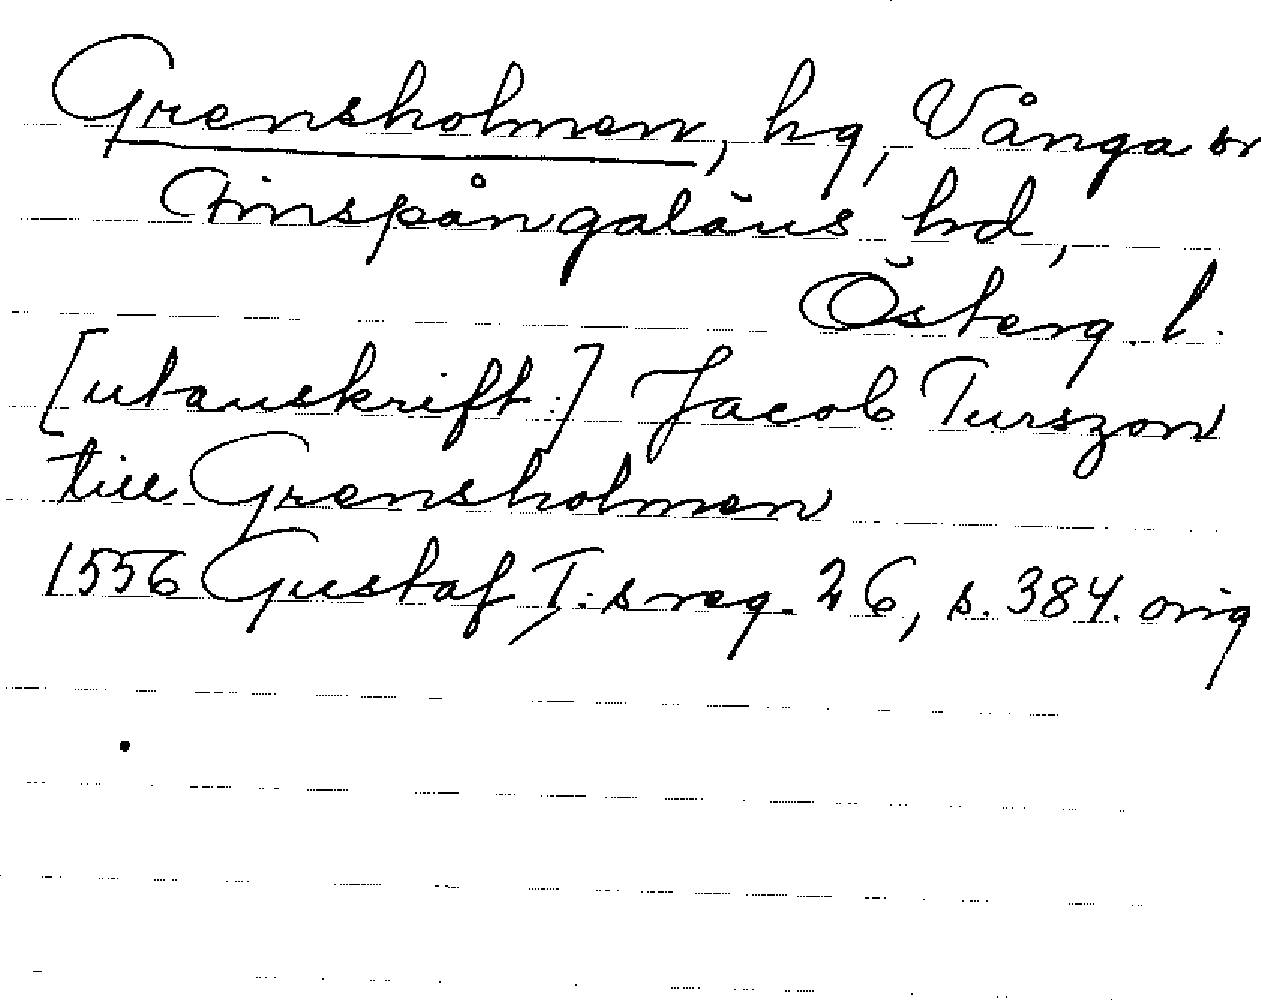 Grensholmen, hg, Vånga sn
Finspångaläns hd,
Österg. l.
[utanskrift:] Jacob Turszon
till Grensholmen
1556 Gustaf I:s reg. 26, s. 384. orig